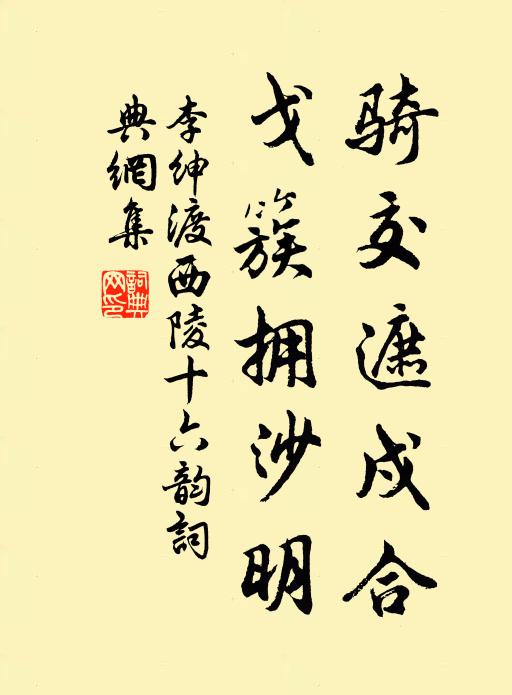 骑交遮戍合
戈簇拥沙明
李绅渡西陵十六韵詞
典網集
詞典网印